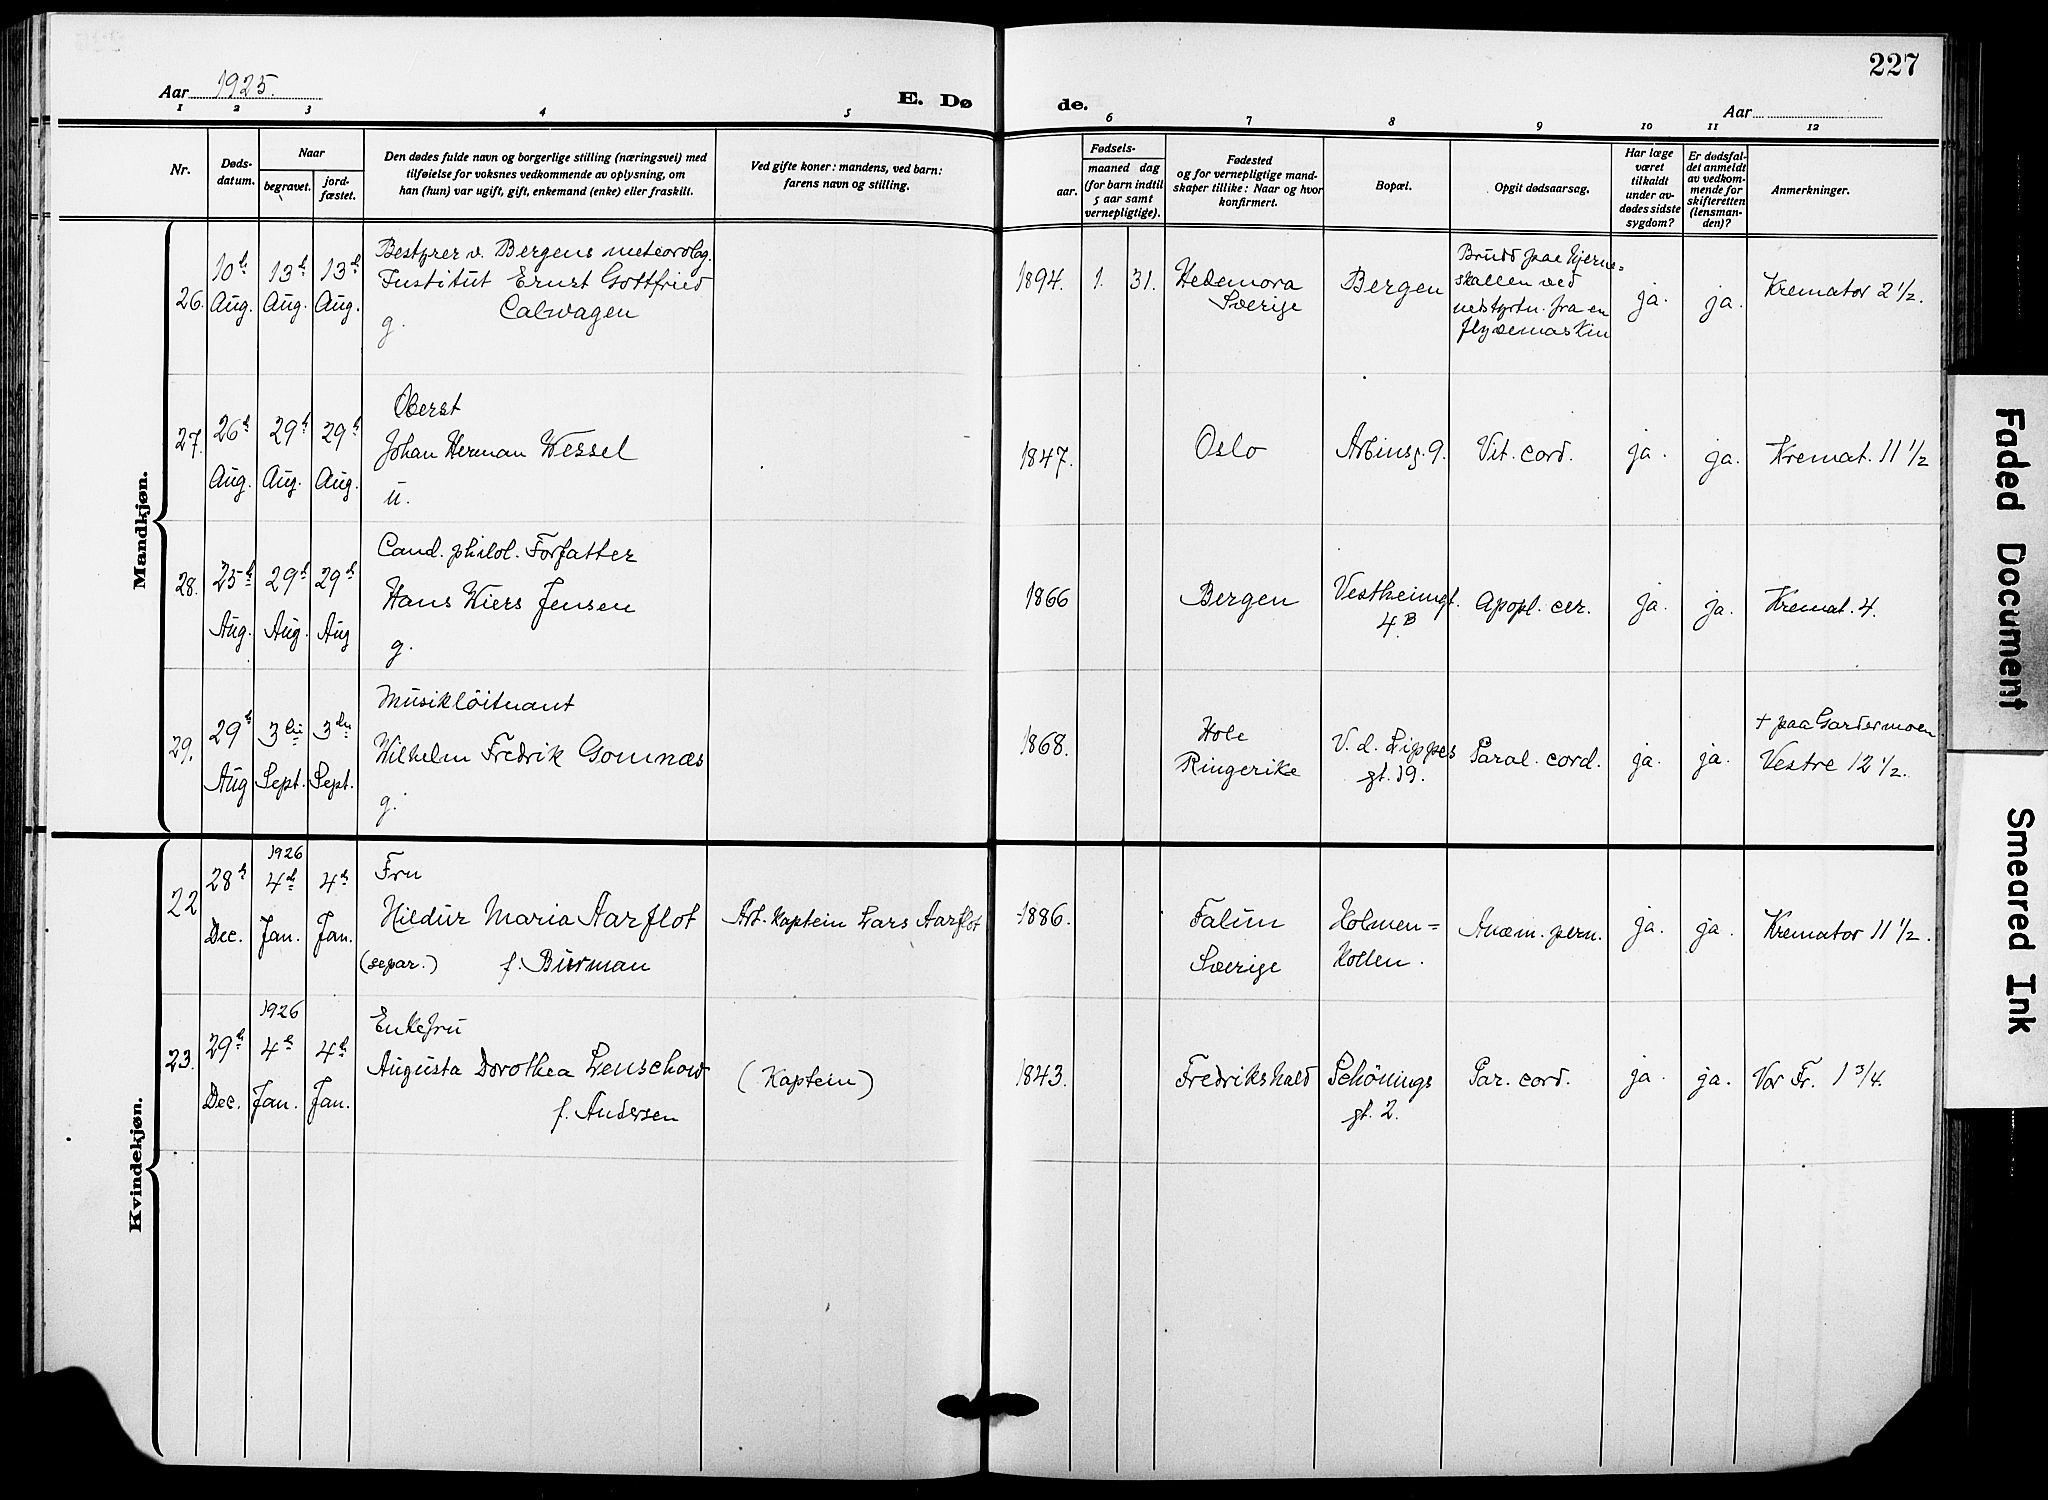 227
Aar 1925.
E. Dø de.
Aar
1 2 3 4 5 6 7 8 9 10 11 12
Nr.
Døds-
datum.
Naar
begravet.
jord-
fæstet.
Den dødes fulde navn og borgerlige stilling (næringsvei) med
tilføielse for voksnes vedkommende av oplysning, om
han (hun) var ugift, gift, enkemand (enke) eller fraskilt.
Ved gifte koner: mandens, ved barn:
farens navn og stilling.
Fødsels-
aar.
maaned dag
(for barn indtil
5 aar samt
vernepligtige).
Fødested
og for vernepligtige mand-
skaper tillike: Naar og hvor
konfirmert.
Bopæl.
Opgit dødsaarsag.
Har læge
været
tilkaldt
under av-
dødes sidste
sygdom?
Er dødsfal-
det anmeldt
av vedkom-
mende for
skifteretten
(lensman-
den)?
Anmerkninger.
Mandkjøn.
26.
10de
Aug.
13de
Aug.
13de
Aug.
Bestyrer v. Bergens meteorolog.
Institut Ernst Gottfried
Calwagen
g.
1894. 1. 31.
Hedemora
Sverige
Bergen
Brudd paa Hjerne=
skallen ved
nedstyrtn. fra en
flyvemaskin
ja.
ja.
Kremator 2 1/2.
27.
26de
Aug.
29de
Aug.
29de
Aug.
Oberst
Johan Herman Wessel
u.
1847.
Oslo
Arbinsg. 9.
Vit. cord.
ja.
ja.
Kremat. 11 1/2
28.
25de
Aug.
29de
Aug.
29de
Aug
Cand. philol. Forfatter
Hans Wiers Jensen
g.
1866
Bergen
Vestheimgt.
4.B
Apopl. cer.
ja.
ja.
Kremat. 4.
29.
29de
Aug
3die
Sept.
3die
Sept.
Musikløitnant
Wilhelm Fredrik Gomnæs
g.
1868.
Hole
Ringerike
V. d. Lippes
gt. 19.
Paral. cord.
ja.
ja.
+ paa Gardermoen
Vestre 12 1/2.
Kvindekjøn.
22
28de
Dec.
1926
4de
Jan.
4de
Jan.
Fru
Hildur Maria Aarflot
(separ.) f. Burman
Art. Kaptein Lars Aarflot
1886.
Falun
Sverige
Holmen=
kollen.
Anæm. pern.
ja.
ja.
Kremator 11 1/2.
23.
29de
Dec.
1926
4de
Jan.
4de
Jan.
Enkefru
Augusta Dorothea Lenschow
f. Andersen
(Kaptein)
1843.
Fredrikshald
Schönings
gt. 2.
Par. cord.
ja.
ja.
Vor Fr. 1 3/4.
Faded Document
Smeared Ink